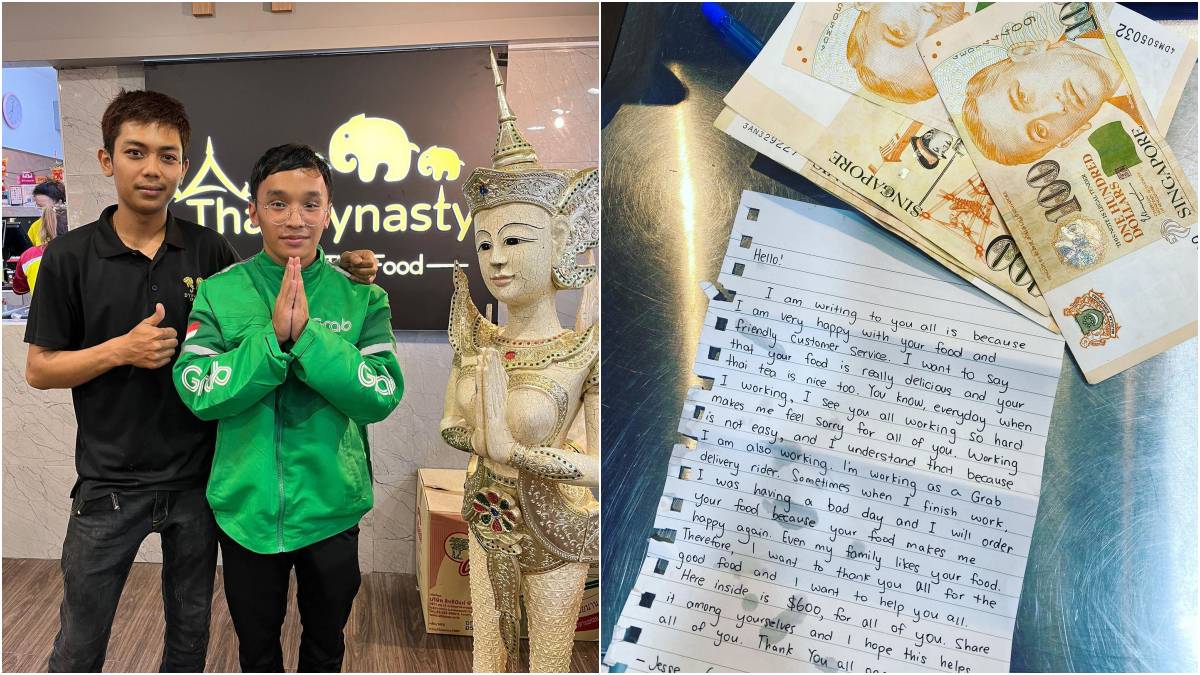 Tha ynasty
Food
Grab
Grab
Grab
SINGAPORE
SINGAPORE
ONE HUNDRED
DOLLARS
100
Hello!
I am writing to you all is because
I am very happy with your food and
friendly customer service. I want to say
that your food is really delicious and your
thai tea is nice too. You know, everyday when
I working, I see you all working so hard
makes me feel sorry for all of you. Working
is not easy, and I understand that because
I am also working. I'm working as a Grab
delivery rider. Sometimes when I finish work,
I was having a bad day and I will order
your food because your food makes me
happy again. Even my family likes your food.
Therefore, I want to thank you all for the
good food and I want to help you all.
Here inside is $600, for all of you. Share
it among yourselves and I hope this helps
all of you. Thank You all
- Jesse